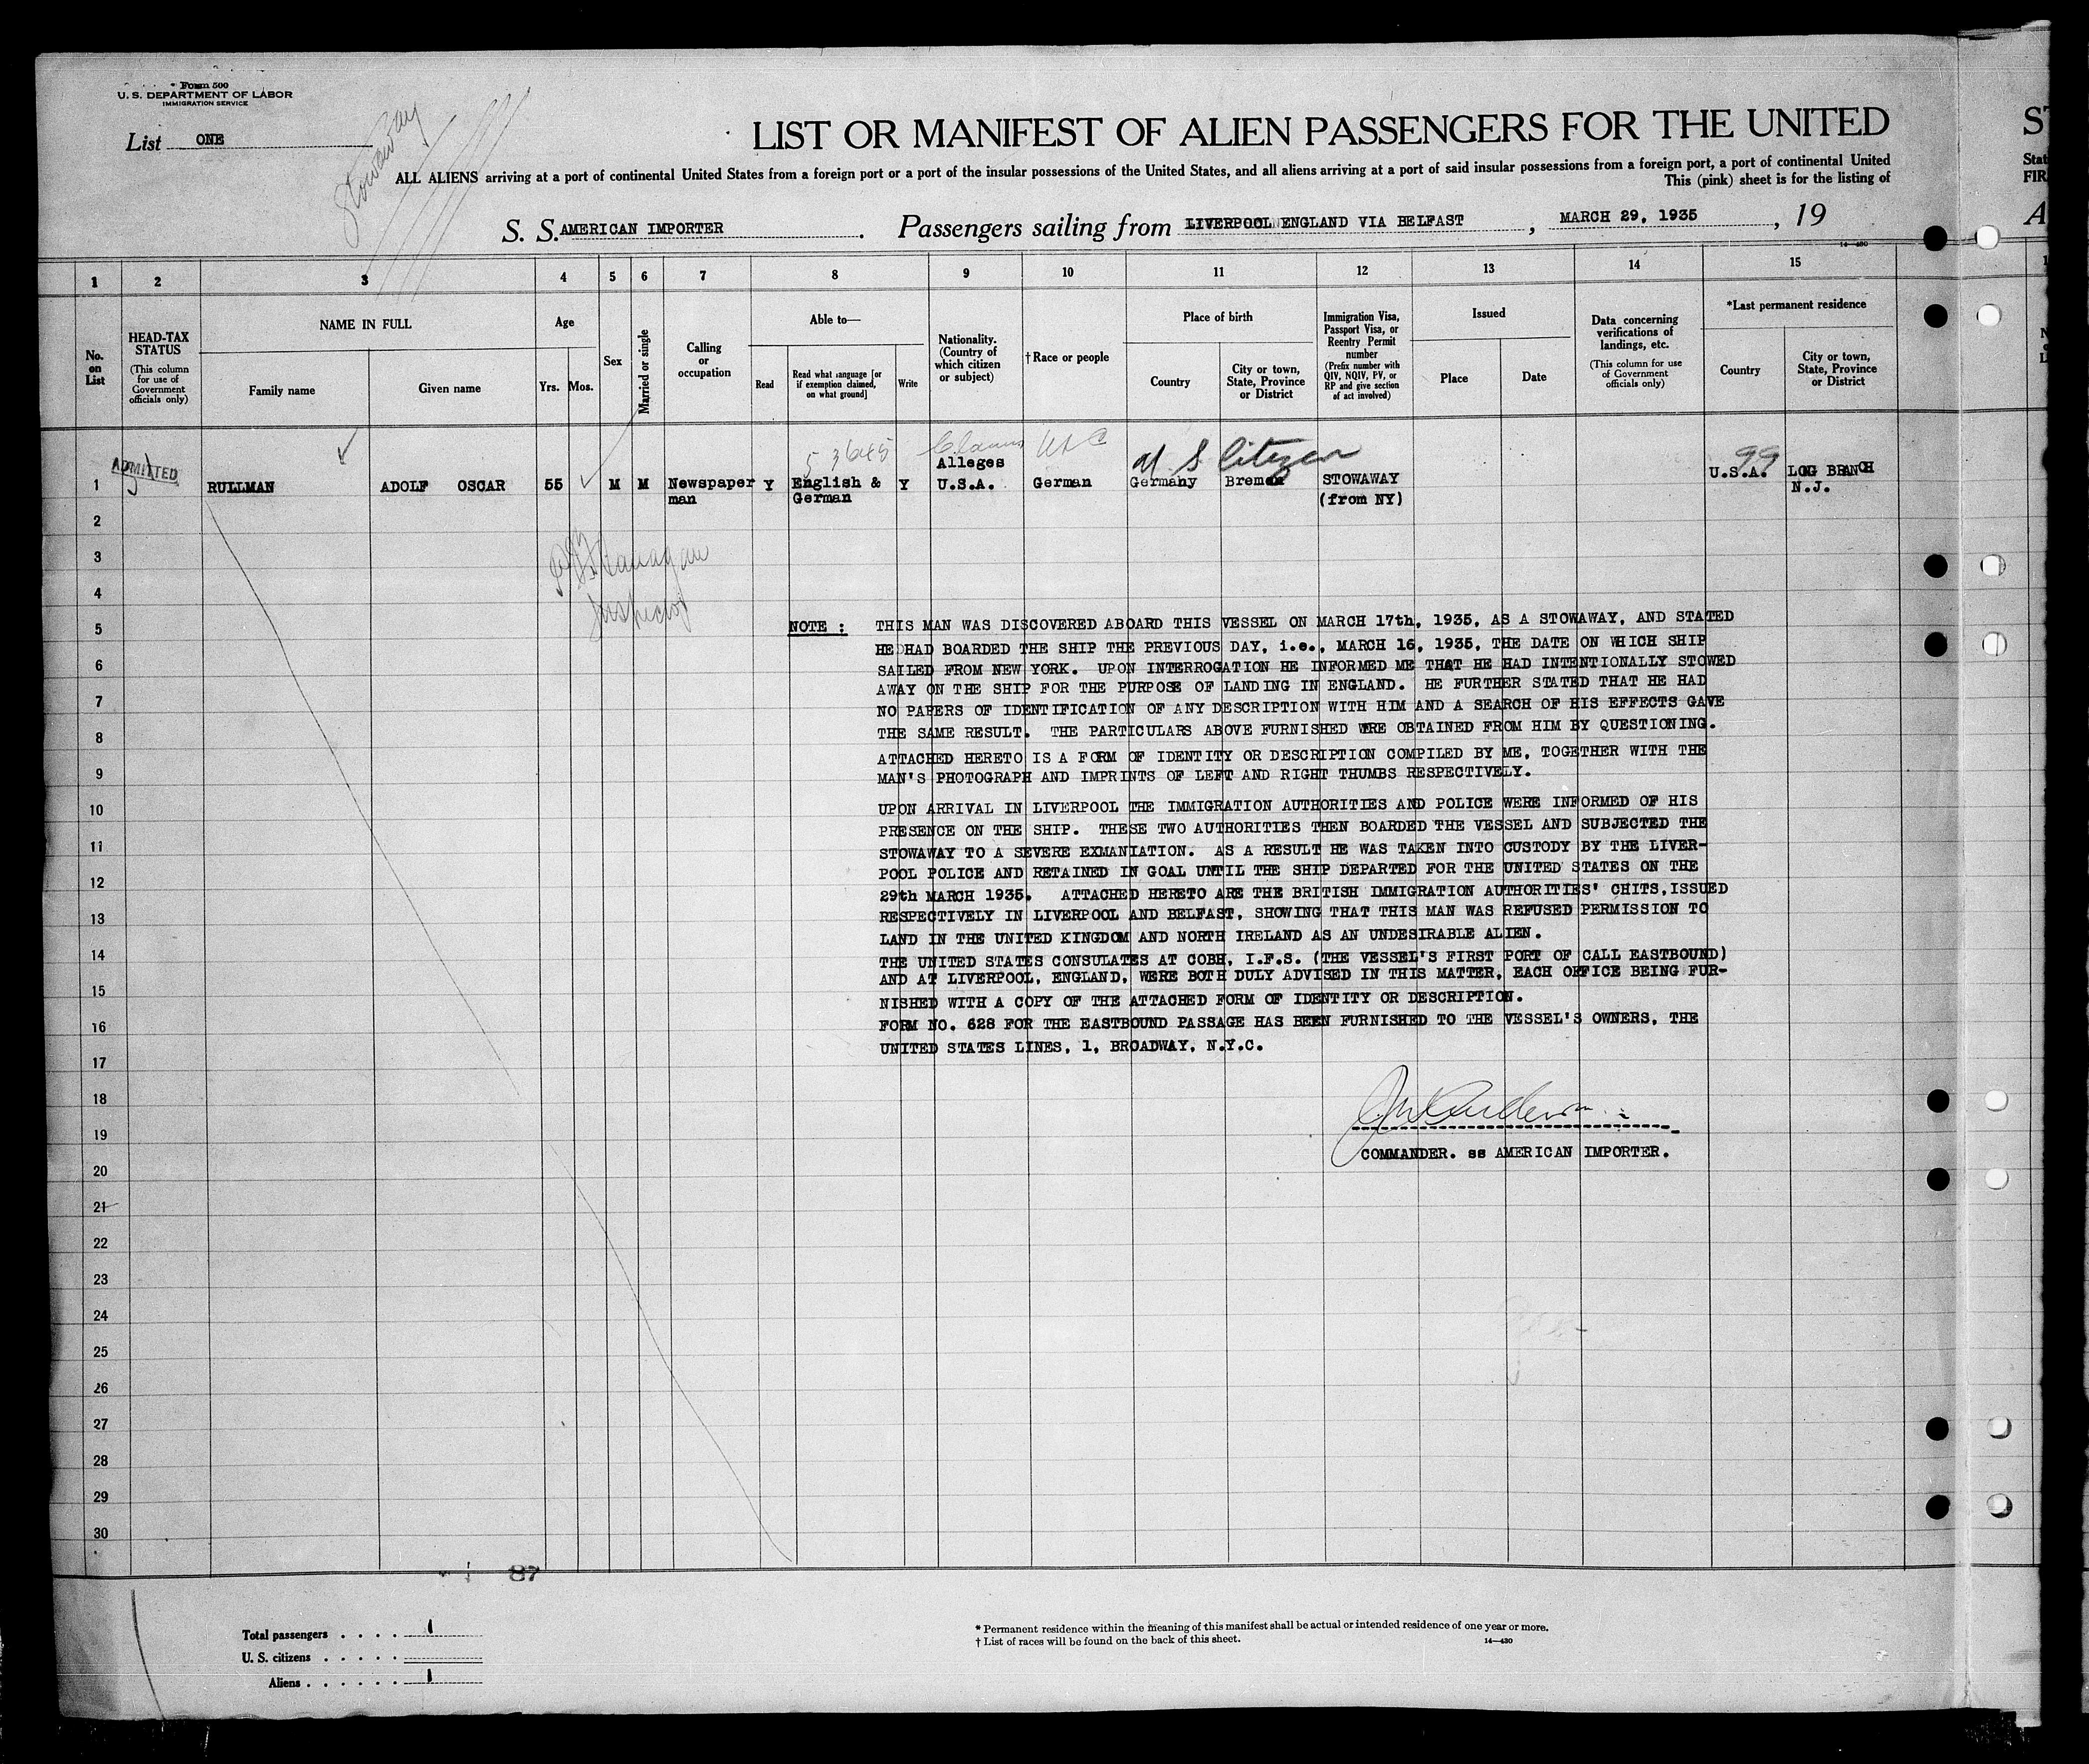 * Form 500
U. S. DEPARTMENT OF LABOR
IMMIGRATION SERVICE
List ONE
Stowaway
LIST OR MANIFEST OF ALIEN PASSENGERS FOR THE UNITED
ST
ALL ALIENS arriving at a port of continental United States from a foreign port or a port of the insular possessions of the United States, and all aliens arriving at a port of said insular possessions from a foreign port, a port of continental United
Stat
This (pink) sheet is for the listing of
FIR
S. S. AMERICAN IMPORTER. Passengers sailing from LIVERPOOL ENGLAND VIA BELFAST, MARCH 29, 1935, 19
A
14—430
1 2 3 4 5 6 7 8 9 10 11 12 13 14 15
No. on List
HEAD-TAX STATUS
(This column for use of Government officials only)
NAME IN FULL
Family name
Given name
Age
Yrs.
Mos.
Sex
Married or single
Calling or occupation
Able to—
Read
Read what language [or if exemption claimed, on what ground]
Write
Nationality. (Country of which citizen or subject)
†Race or people
Place of birth
Country
City or town, State, Province or District
Immigration Visa, Passport Visa, or Reentry Permit number
(Prefix number with QIV, NQIV, PV, or RP and give section of act involved)
Issued
Place
Date
Data concerning verifications of landings, etc.
(This column for use of Government officials only)
*Last permanent residence
Country
City or town, State, Province or District
53645 Claims USC U S Citizen 99
ADMITTED
1 RULLMAN ADOLF OSCAR 55 M M Newspaper man Y English & German Y Alleges U.S.A. German Germany Bremen STOWAWAY (from NY) U.S.A. LOG BRANCH N.J.
2
3
4
Inspector
5
6
7
8
9
10
11
12
13
14
15
16
17
18
19
20
21
22
23
24
25
26
27
28
29
30
NOTE : THIS MAN WAS DISCOVERED ABOARD THIS VESSEL ON MARCH 17th, 1935, AS A STOWAWAY, AND STATED
HE HAD BOARDED THE SHIP THE PREVIOUS DAY, i.e., MARCH 16, 1935, THE DATE ON WHICH SHIP
SAILED FROM NEW YORK. UPON INTERROGATION HE INFORMED ME THAT HE HAD INTENTIONALLY STOWED
AWAY ON THE SHIP FOR THE PURPOSE OF LANDING IN ENGLAND. HE FURTHER STATED THAT HE HAD
NO PAPERS OF IDENTIFICATION OF ANY DESCRIPTION WITH HIM AND A SEARCH OF HIS EFFECTS GAVE
THE SAME RESULT. THE PARTICULARS ABOVE FURNISHED WRE OBTAINED FROM HIM BY QUESTIONING.
ATTACHED HERETO IS A FORM OF IDENTITY OR DESCRIPTION COMPILED BY ME, TOGETHER WITH THE
MAN'S PHOTOGRAPH AND IMPRINTS OF LEFT AND RIGHT THUMBS RESPECTIVELY.
UPON ARRIVAL IN LIVERPOOL THE IMMIGRATION AUTHORITIES AND POLICE WERE INFORMED OF HIS
PRESENCE ON THE SHIP. THESE TWO AUTHORITIES THEN BOARDED THE VESSEL AND SUBJECTED THE
STOWAWAY TO A SEVERE EXMANIATION. AS A RESULT HE WAS TAKEN INTO CUSTODY BY THE LIVER-
POOL POLICE AND RETAINED IN GOAL UNTIL THE SHIP DEPARTED FOR THE UNITED STATES ON THE
29th MARCH 1935. ATTACHED HERETO ARE THE BRITISH IMMIGRATION AUTHORITIES' CHITS, ISSUED
RESPECTIVELY IN LIVERPOOL AND BELFAST, SHOWING THAT THIS MAN WAS REFUSED PERMISSION TO
LAND IN THE UNITED KINGDOM AND NORTH IRELAND AS AN UNDESIRABLE ALIEN.
THE UNITED STATES CONSULATES AT COBH, I.F.S. (THE VESSEL'S FIRST PORT OF CALL EASTBOUND)
AND AT LIVERPOOL, ENGLAND, WERE BOTH DULY ADVISED IN THIS MATTER, EACH OFFICE BEING FUR-
NISHED WITH A COPY OF THE ATTACHED FORM OF IDENTITY OR DESCRIPTION.
FORM NO. 628 FOR THE EASTBOUND PASSAGE HAS BEEN FURNISHED TO THE VESSEL'S OWNERS, THE
UNITED STATES LINES, 1, BROADWAY, N.Y.C.
COMMANDER. ss AMERICAN IMPORTER.
87
Total passengers . . . . 1
U. S. citizens . . . . .
Aliens . . . . . . 1
* Permanent residence within the meaning of this manifest shall be actual or intended residence of one year or more.
† List of races will be found on the back of this sheet.
14—430